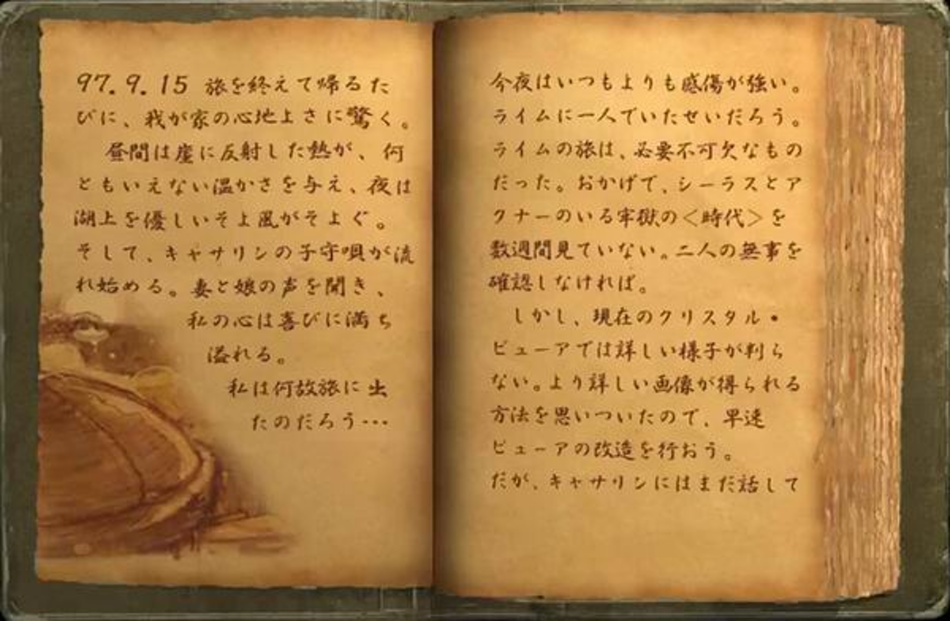 97.9.15 旅を終えて帰るた
びに、我が家の心地よさに驚く。
昼間は崖に反射した熱が、何
ともいえない温かさを与え、夜は
湖上を優しいそよ風がそよぐ。
そして、キャサリンの子守唄が流
れ始める。妻と娘の声を聞き、
私の心は喜びに満ち
溢れる。
私は何故旅に出
たのだろう…
今夜はいつもよりも感傷が強い。
ライムに一人でいたせいだろう。
ライムの旅は、必要不可欠なもの
だった。おかげで、シーラスとア
クナーのいる牢獄の＜時代＞を
数週間見ていない。二人の無事を
確認しなければ。
しかし、現在のクリスタル・
ビューアでは詳しい様子が判ら
ない。より詳しい画像が得られる
方法を思いついたので、早速
ビューアの改造を行おう。
だが、キャサリンにはまだ話して